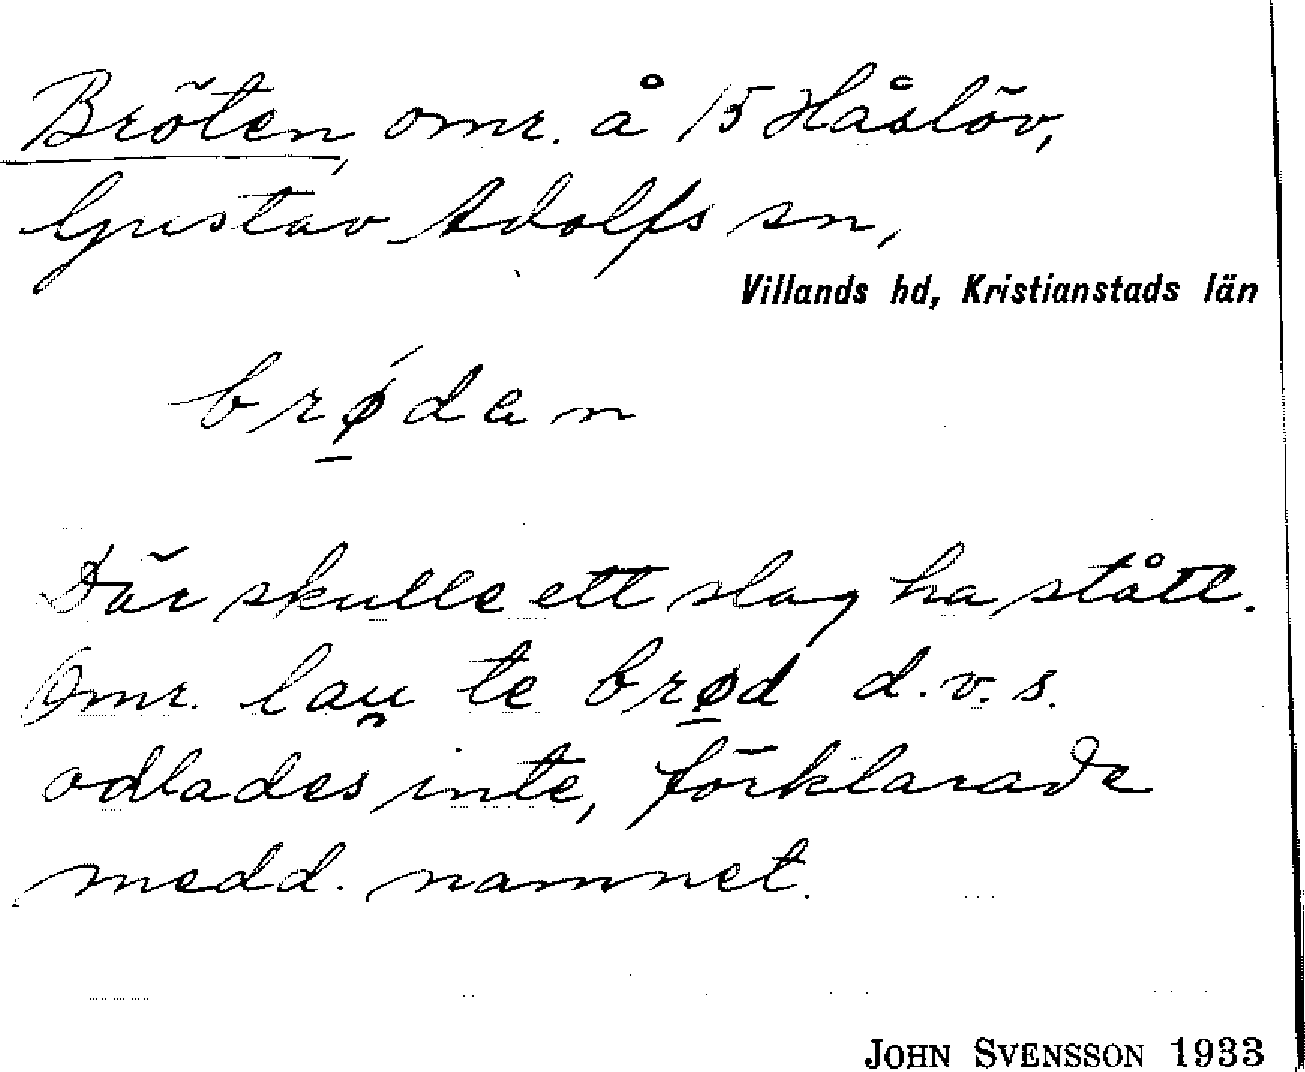 Bröten, omr. å 15 Håslöv,
Gustav Adolfs sn,
Villands hd, Kristianstads län
brǿdan
Där skulle ett slag ha stått.
Omr. lau̯ te brød d.v.s.
odlades inte, förklarade
medd. namnet.
JOHN SVENSSON 1933